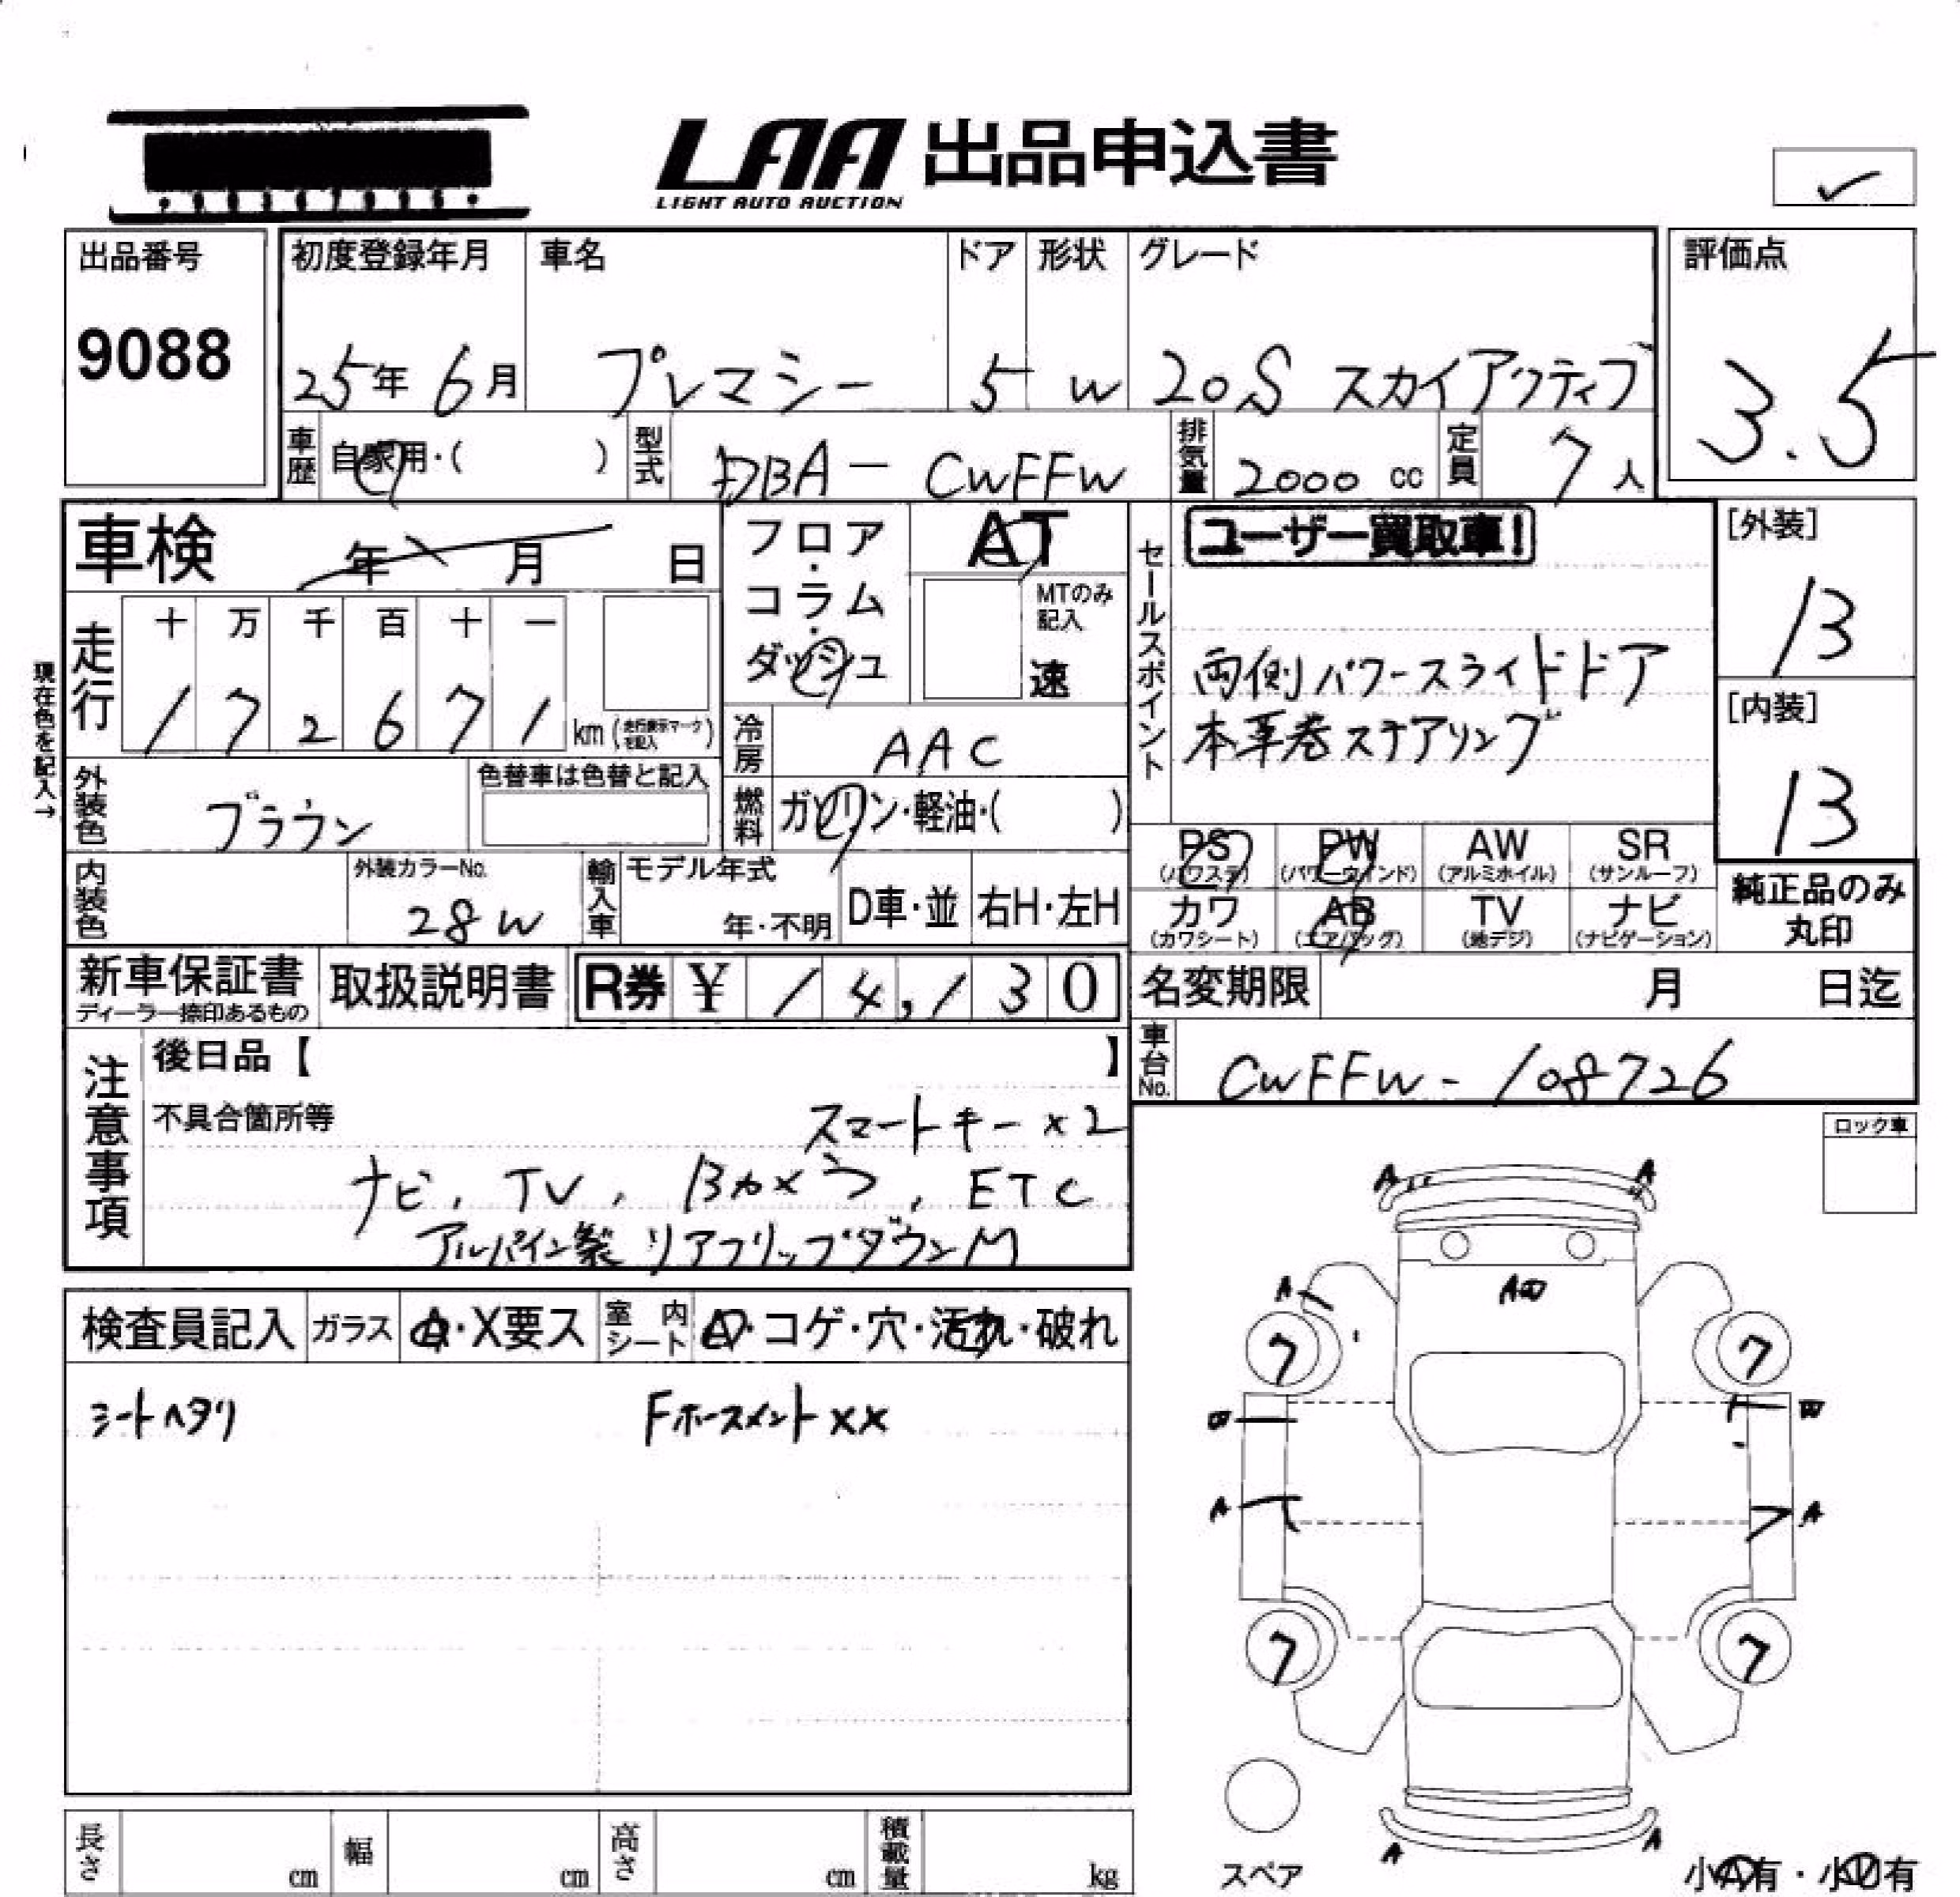 LAA 出品申込書
LIGHT AUTO AUCTION
出品番号
9088
初度登録年月
25年 6月
車名
プレマシー
ドア
5
形状
W
グレード
20S スカイアクティブ
評価点
3.5
車歴
自家用・( )
型式
DBA - CWFFW
排気量
2000 cc
定員
7人
車検
年 月 日
フロア・コラム・ダッシュ
AT
MTのみ記入
速
セールスポイント
ユーザー買取車!
両側パワースライドドア
本革巻ステアリング
[外装]
B
[内装]
B
現在色を記入→
走行
十 万 千 百 十 一
1 7 2 6 7 1
km (走行表示マークを記入)
冷房
AAC
外装色
ブラウン
色替車は色替と記入
燃料
ガソリン・軽油・( )
PS
(パワステ)
PW
(パワーウインド)
AW
(アルミホイル)
SR
(サンルーフ)
カワ
(カワシート)
AB
(エアバッグ)
TV
(地デジ)
ナビ
(ナビゲーション)
純正品のみ
丸印
内装色
外装カラーNo.
28W
輸入車
モデル年式
年・不明
D車・並
右H・左H
新車保証書
ディーラー捺印あるもの
取扱説明書
R券 ¥ 14,130
名変期限
月 日迄
車台No.
CWFFW - 108726
注意事項
後日品【 】
不具合箇所等
スマートキー×2
ナビ, TV, Bカメラ, ETC
アルパイン製 リアフリップダウンM
ロック車
検査員記入
ガラス
A・X要ス
室内
シート
コゲ・穴・汚れ・破れ
シートヘタリ
Fホースメント××
A
A
A
7
7
A
A
7
7
A
A
スペア
小A有・小U有
長さ
cm
幅
cm
高さ
cm
積載量
kg